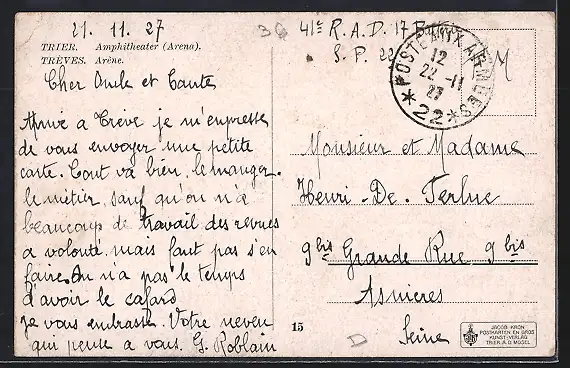 21. 11. 27
41e R.A.D. 17 B
S. P. 22
TRIER. Amphitheater (Arena).
TRÈVES. Arène.
POSTE AUX ARMÉES
12
22 - 11
27
* 22 *
F M
Cher Oncle et Tante
Arrivé a Trève je m'empresse
de vous envoyer une petite
carte. Tout va bien, le manger.
le métier, sauf qu'on n'a
beaucoup de travail des revues
a volonté. mais faut pas s'en
faire. On n'a pas le temps
d'avoir le cafard
je vous embrasse. Votre neveu
qui pense a vous. G. Roblain
Monsieur et Madame
Henri - De - Terlue
9 bis Grande Rue 9 bis
Asnieres
Seine
15
JACOB KRON
POSTKARTEN EN GROS
KUNST-VERLAG
TRIER A.D. MOSEL